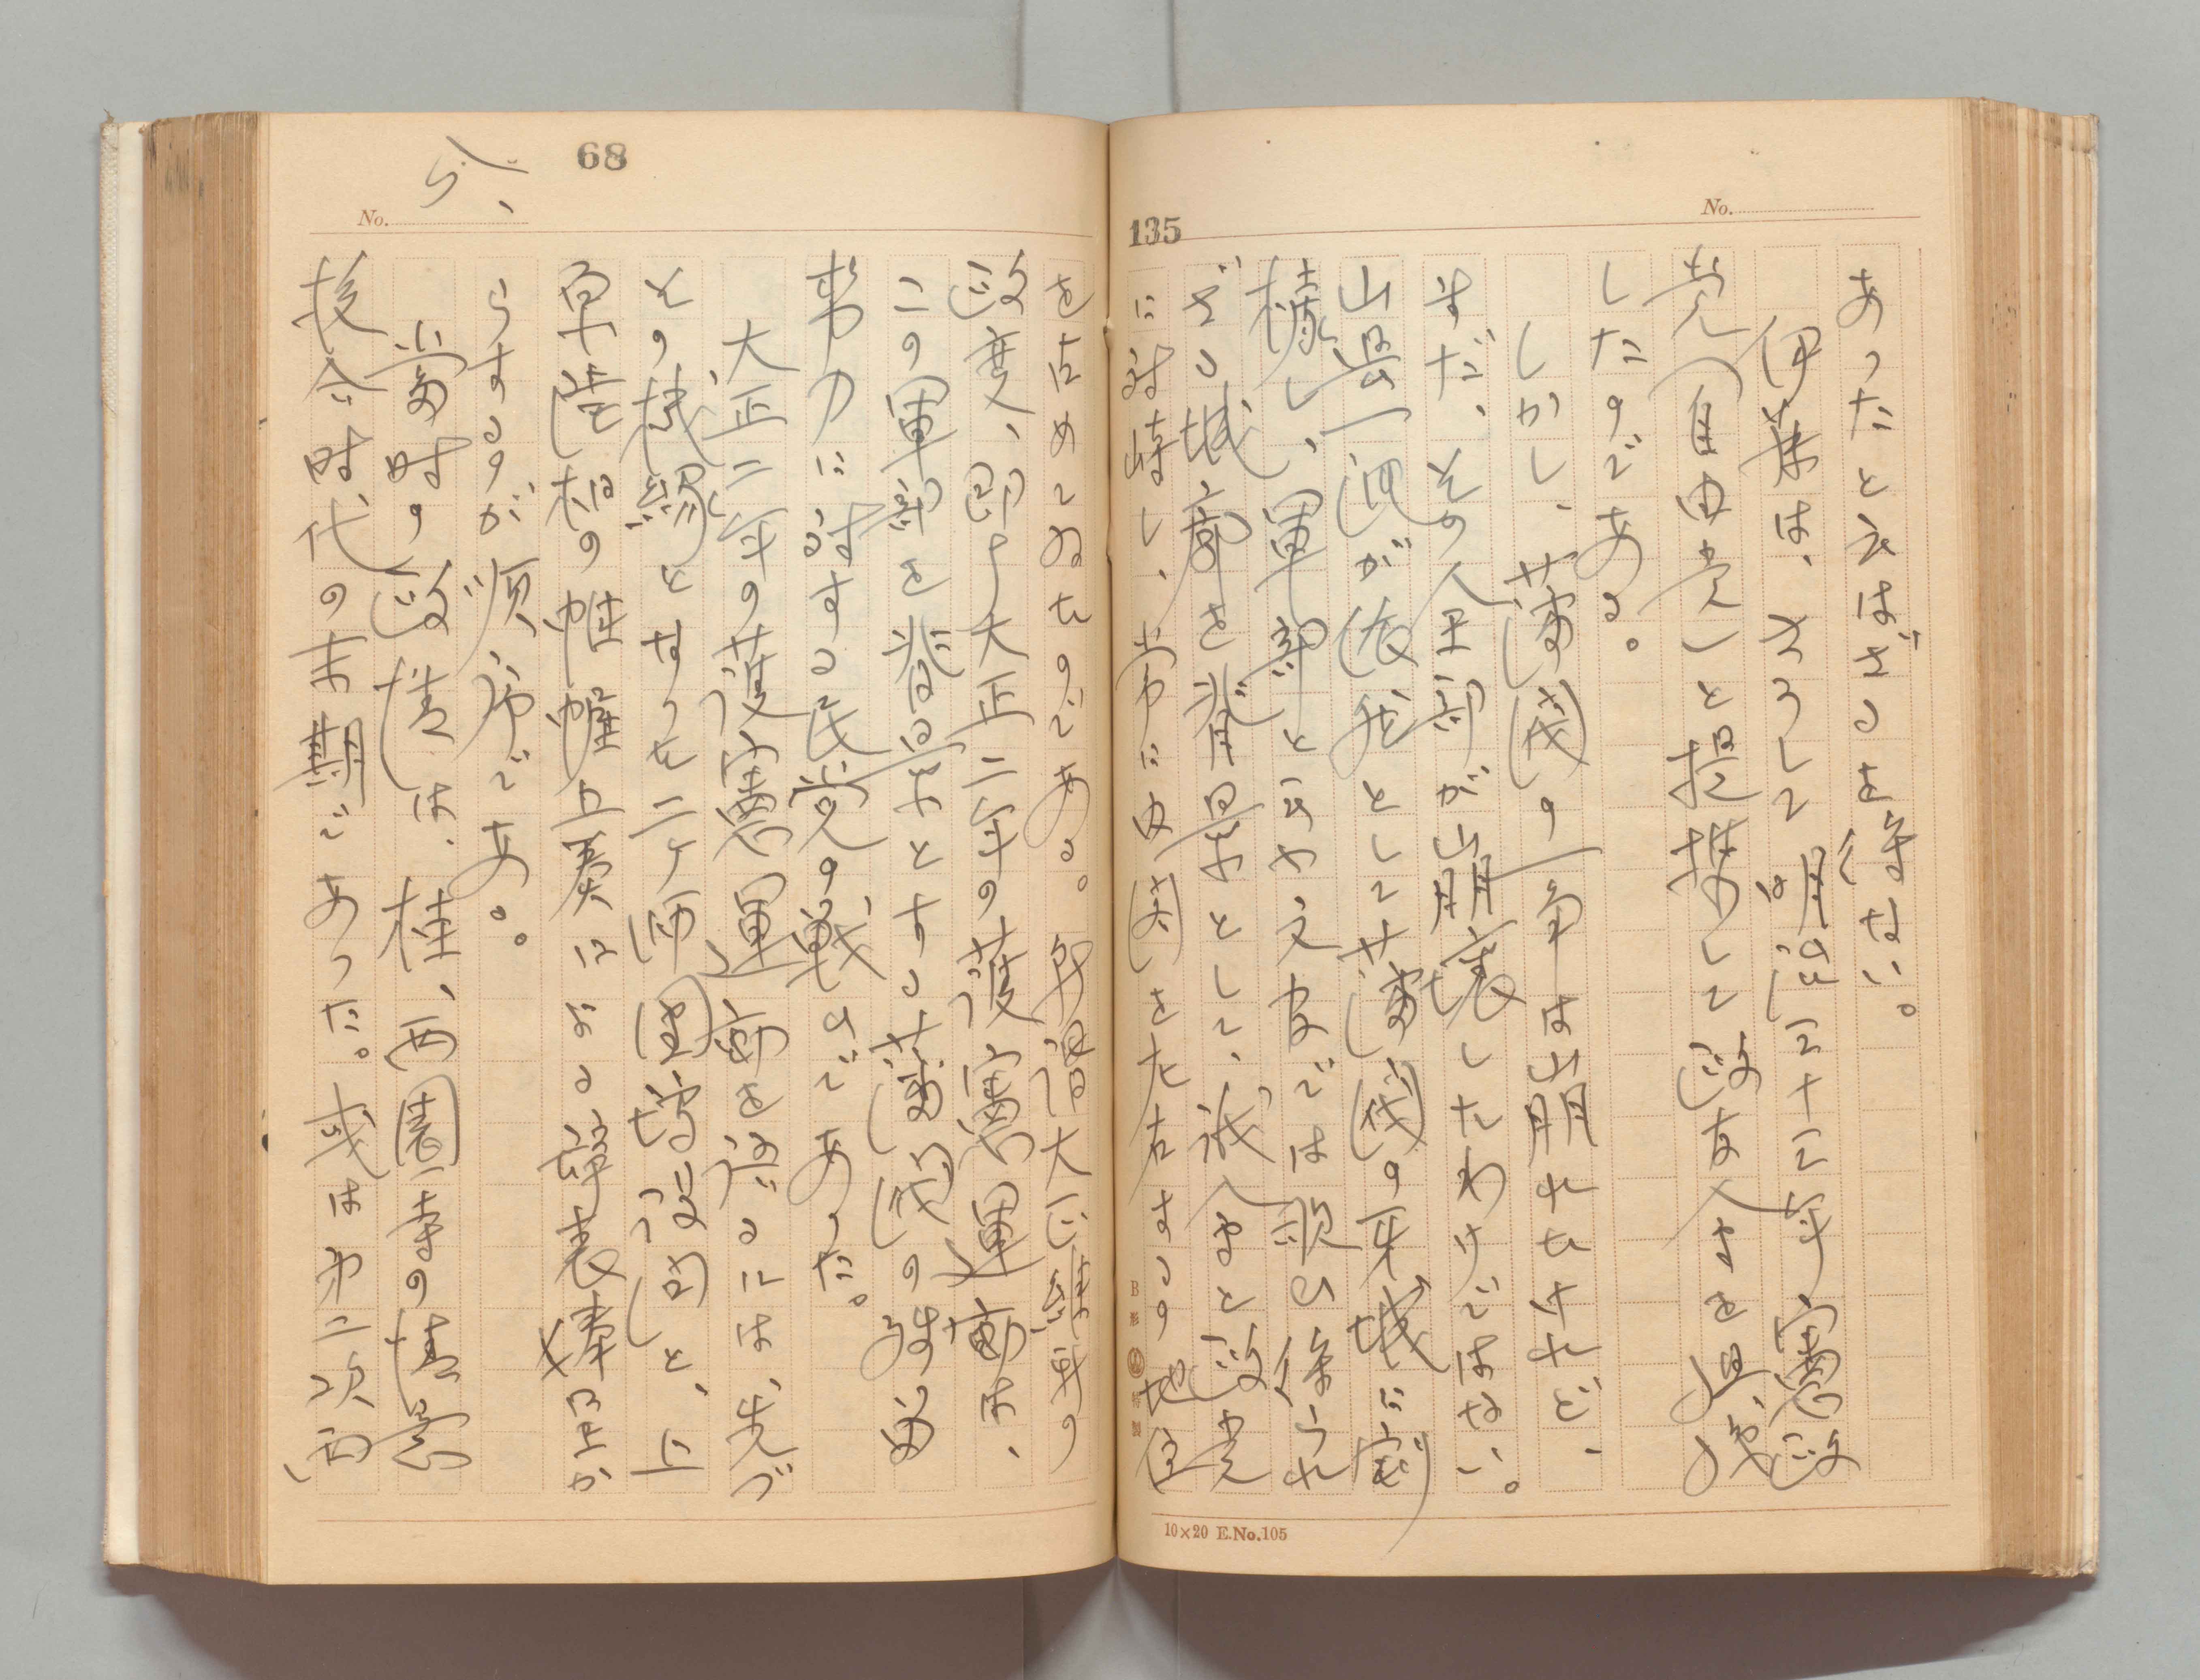 135
No.
あったと云はざるを得ない。
伊藤は、かうして明治三十三年、憲政
党(自由党)と提携して政友会を組織
したのである。
しかし、藩閥の一角は崩れたけれど、
まだ、その全部が崩壊したわけではない。
山県一派が依然として藩閥の牙城に割
據し、軍部と云ふ文官では傾ひ得られ
ざる城廓を背景として、議会と政党
に対峙し、常に内閣を左右するの地位
10×20 E.No.105
68
No.
を占めてゐたのである。所謂大正維新の
政変、即ち大正二年の護憲運動は、
この軍部を背景とする藩閥の残党
勢力に対する民党の戦ひであった。
大正二年の護憲運動を語るには、先づ
その機縁となった二ケ師団増設問題と、上
原陸相の帷幄上奏による辞表捧呈か
らするのが順序である。
当時の政情は、桂、西園寺の情意
投合時代の末期であった。或は第二次西